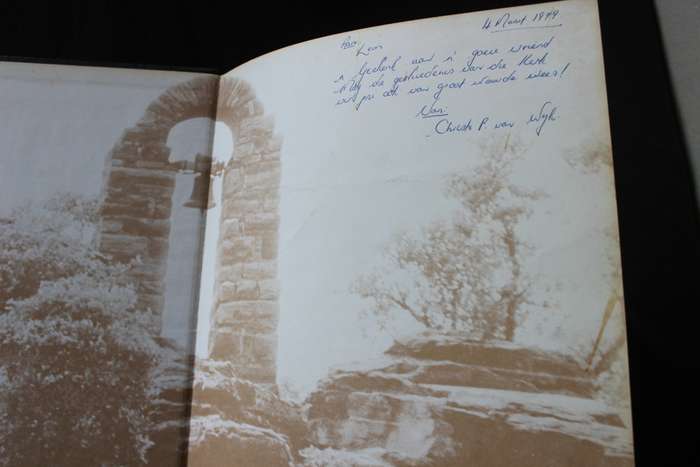 4 Maart 1979
Leon
'n Geskenk aan 'n goeie vriend
Mag die geskiedenis van die Kerk
vir jou ook van groot waarde wees!
Van:
Christo P. van Wyk.